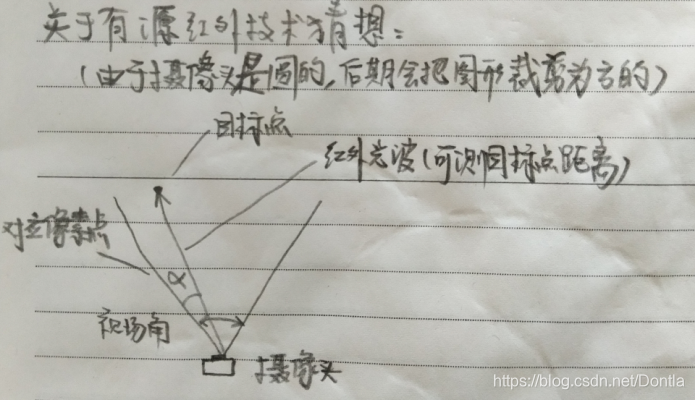 关于有源红外技术猜想:
(由于摄像头是圆的,后期会把图形裁剪为方的)
目标点
红外光波(可测目标点距离)
对应像素点
α
视场角
摄像头
https://blog.csdn.net/Dontla